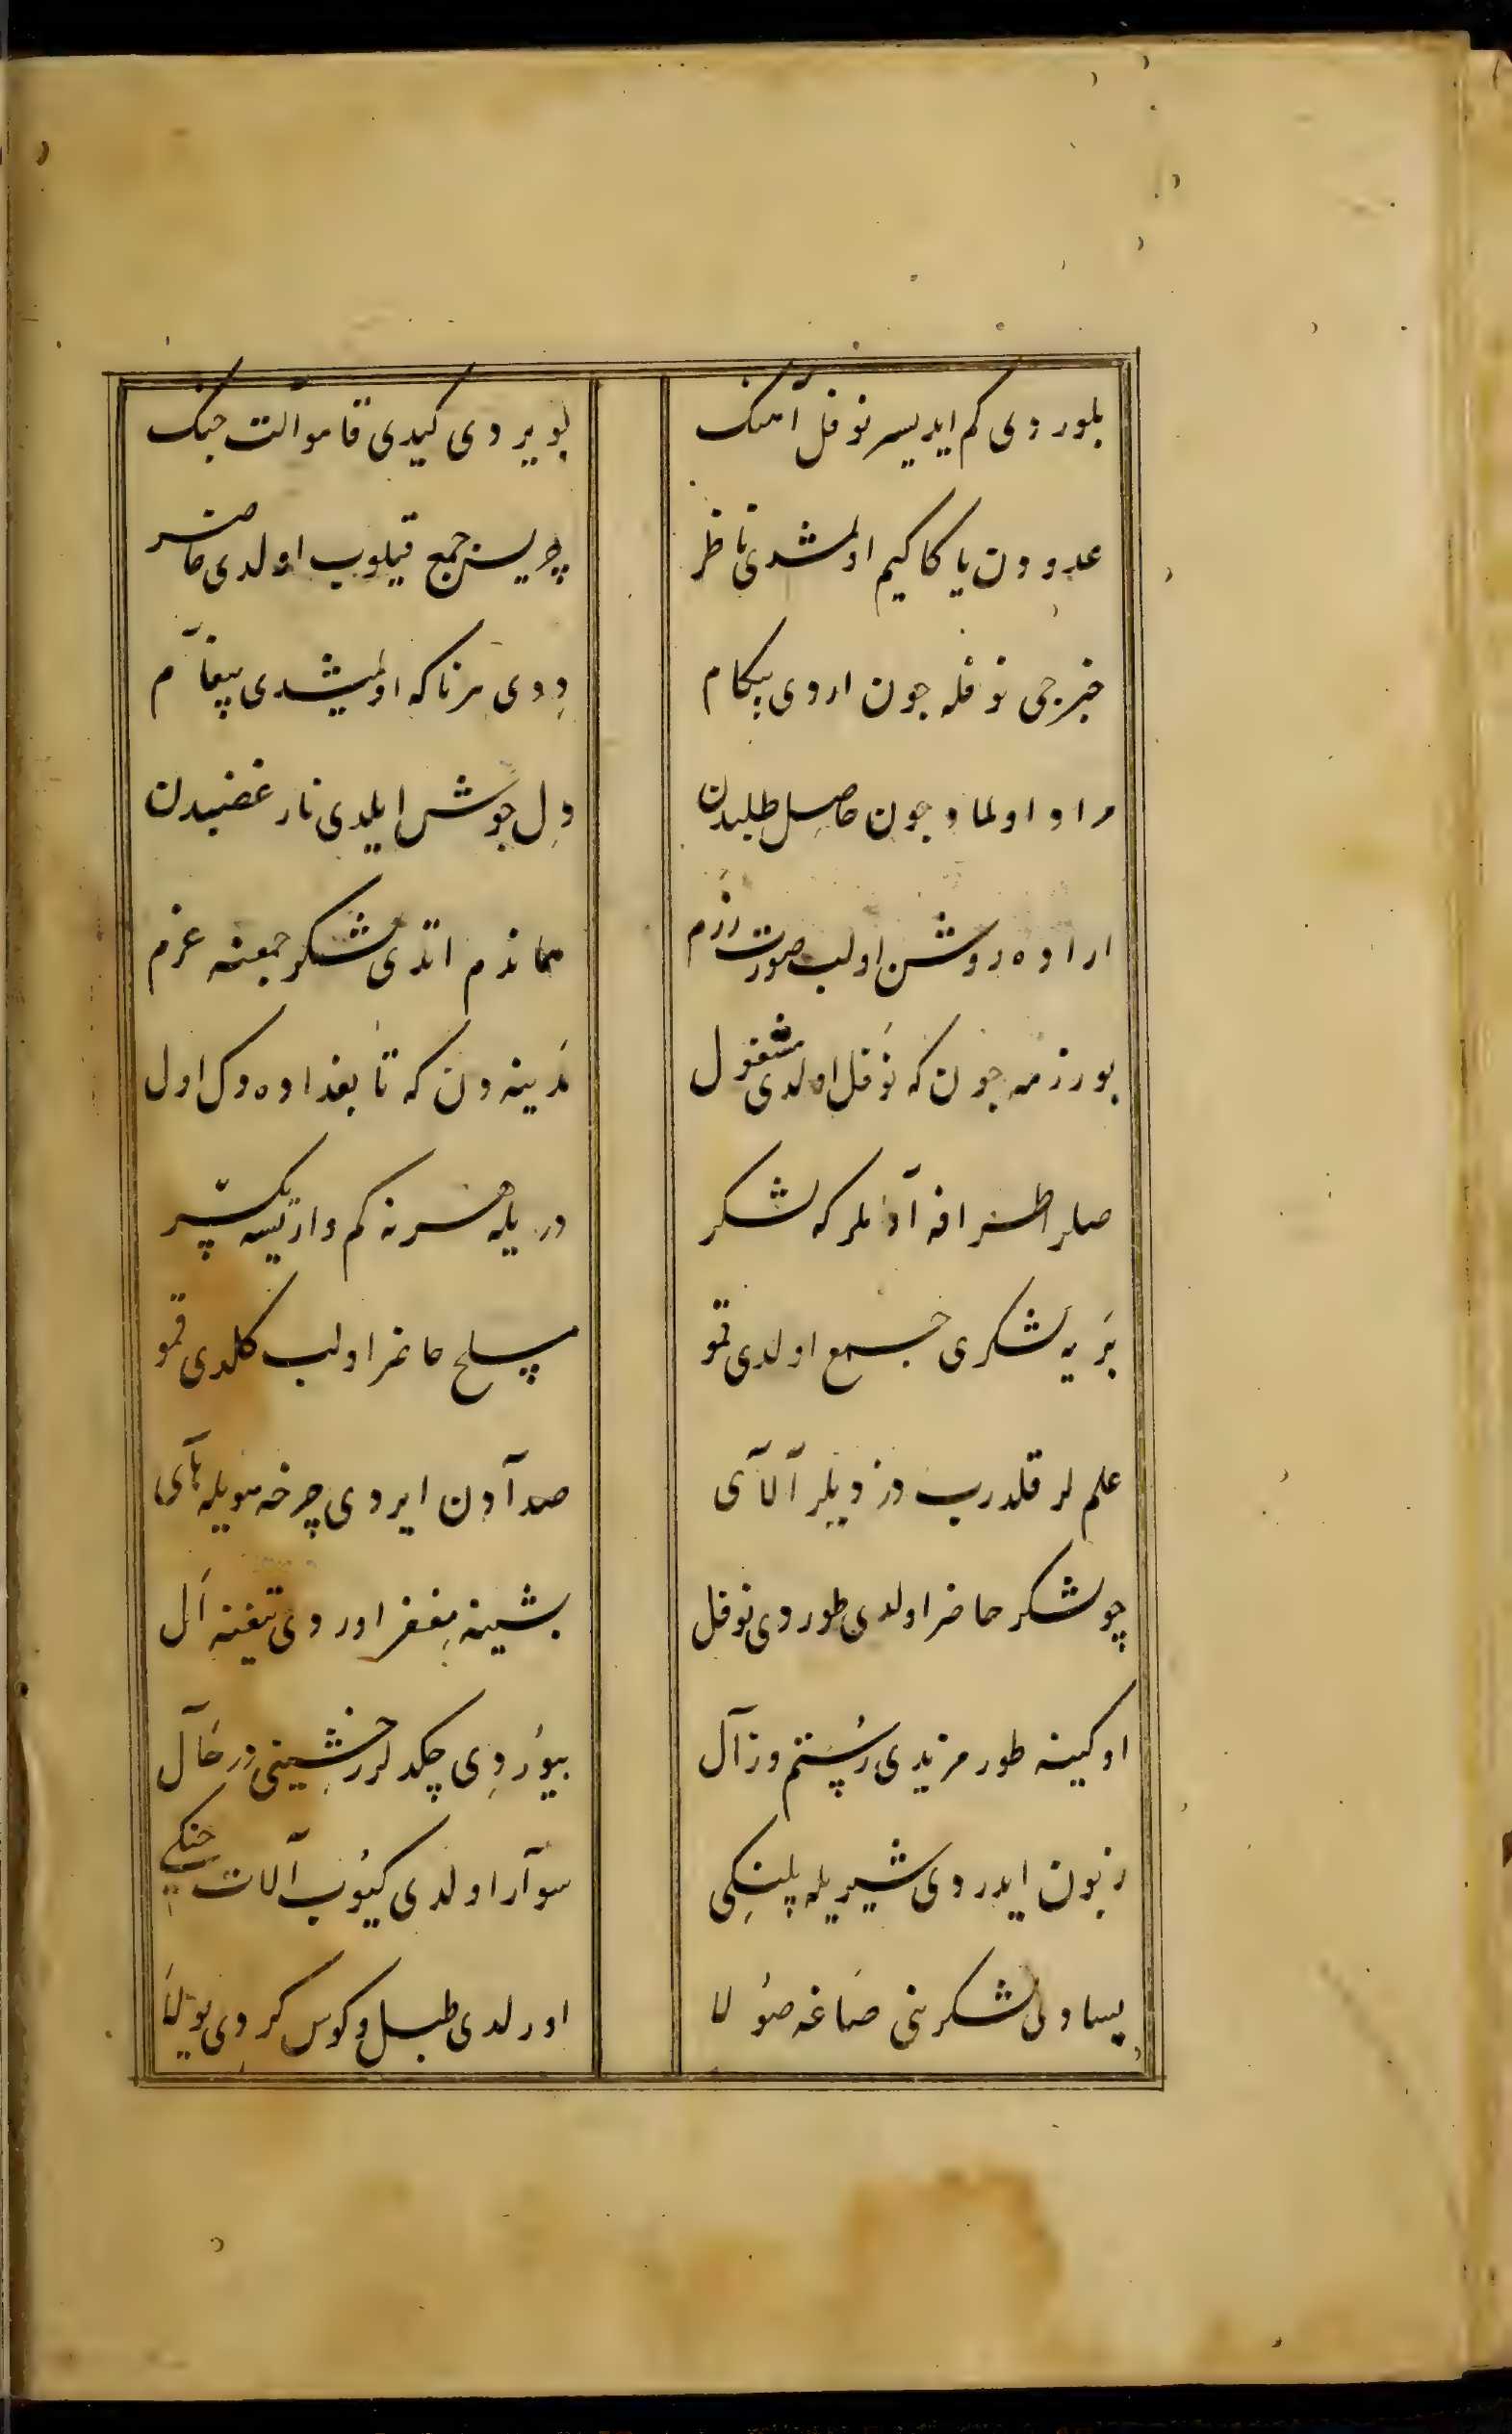 بلوردی کم ایدیسر نوفل آهنک بویردی کیدی قامو آلت جنک
عدودن یاکا کیم اولمشدی ناظر چریسن جمع قیلوب اولدی حاضر
خبرجی نوفله جون اردی پیکام ددی هر ناکه اولمیشدی پیغآم
مراد اولمادوجون حاصل طلبدن دل جوش ایلدی نار غضبدن
ارادهدا روشن اولب صورت رزم هماندم اتدی لشکر جمعنه عزم
بو رزمه جون که نوفل اولدی مشغول مدینهدن که تا بغداده دک اول
صلر اطرافه آدملر که لشکر دریله هر نه کم وار یسه یکسر
بریه لشکری جمع اولدی قمو سلح حاضر اولب کلدی قمو
علم لر قلدرب دزدیلر آلآی صدآدن ایردی چرخه هویله هآی
چو لشکر حاضر اولدی طوردی نوفل بشینه مغفر اوردی تیغنه آل
اوکینه طورمزیدی رستم وزآل بیوردی چکدلر رخشینی درحآل
زبون ایدردی شیریله پلنکی سوآر اولدی کیوب آلات جنکی
یساولی لشکرنی صاغه صولا اورلدی طبل و کوس کردی یولا